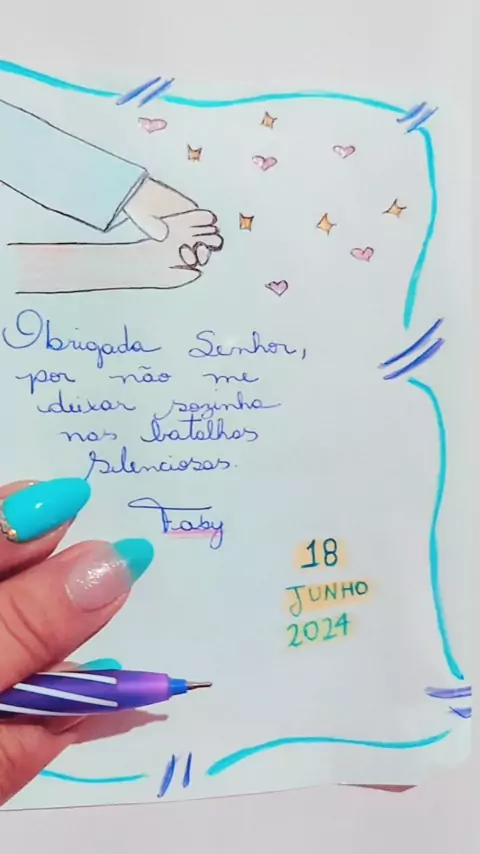 Obrigada Senhor,
por não me
deixar sozinha
nas batalhas
silenciosas.
Faby
18
JUNHO
2024